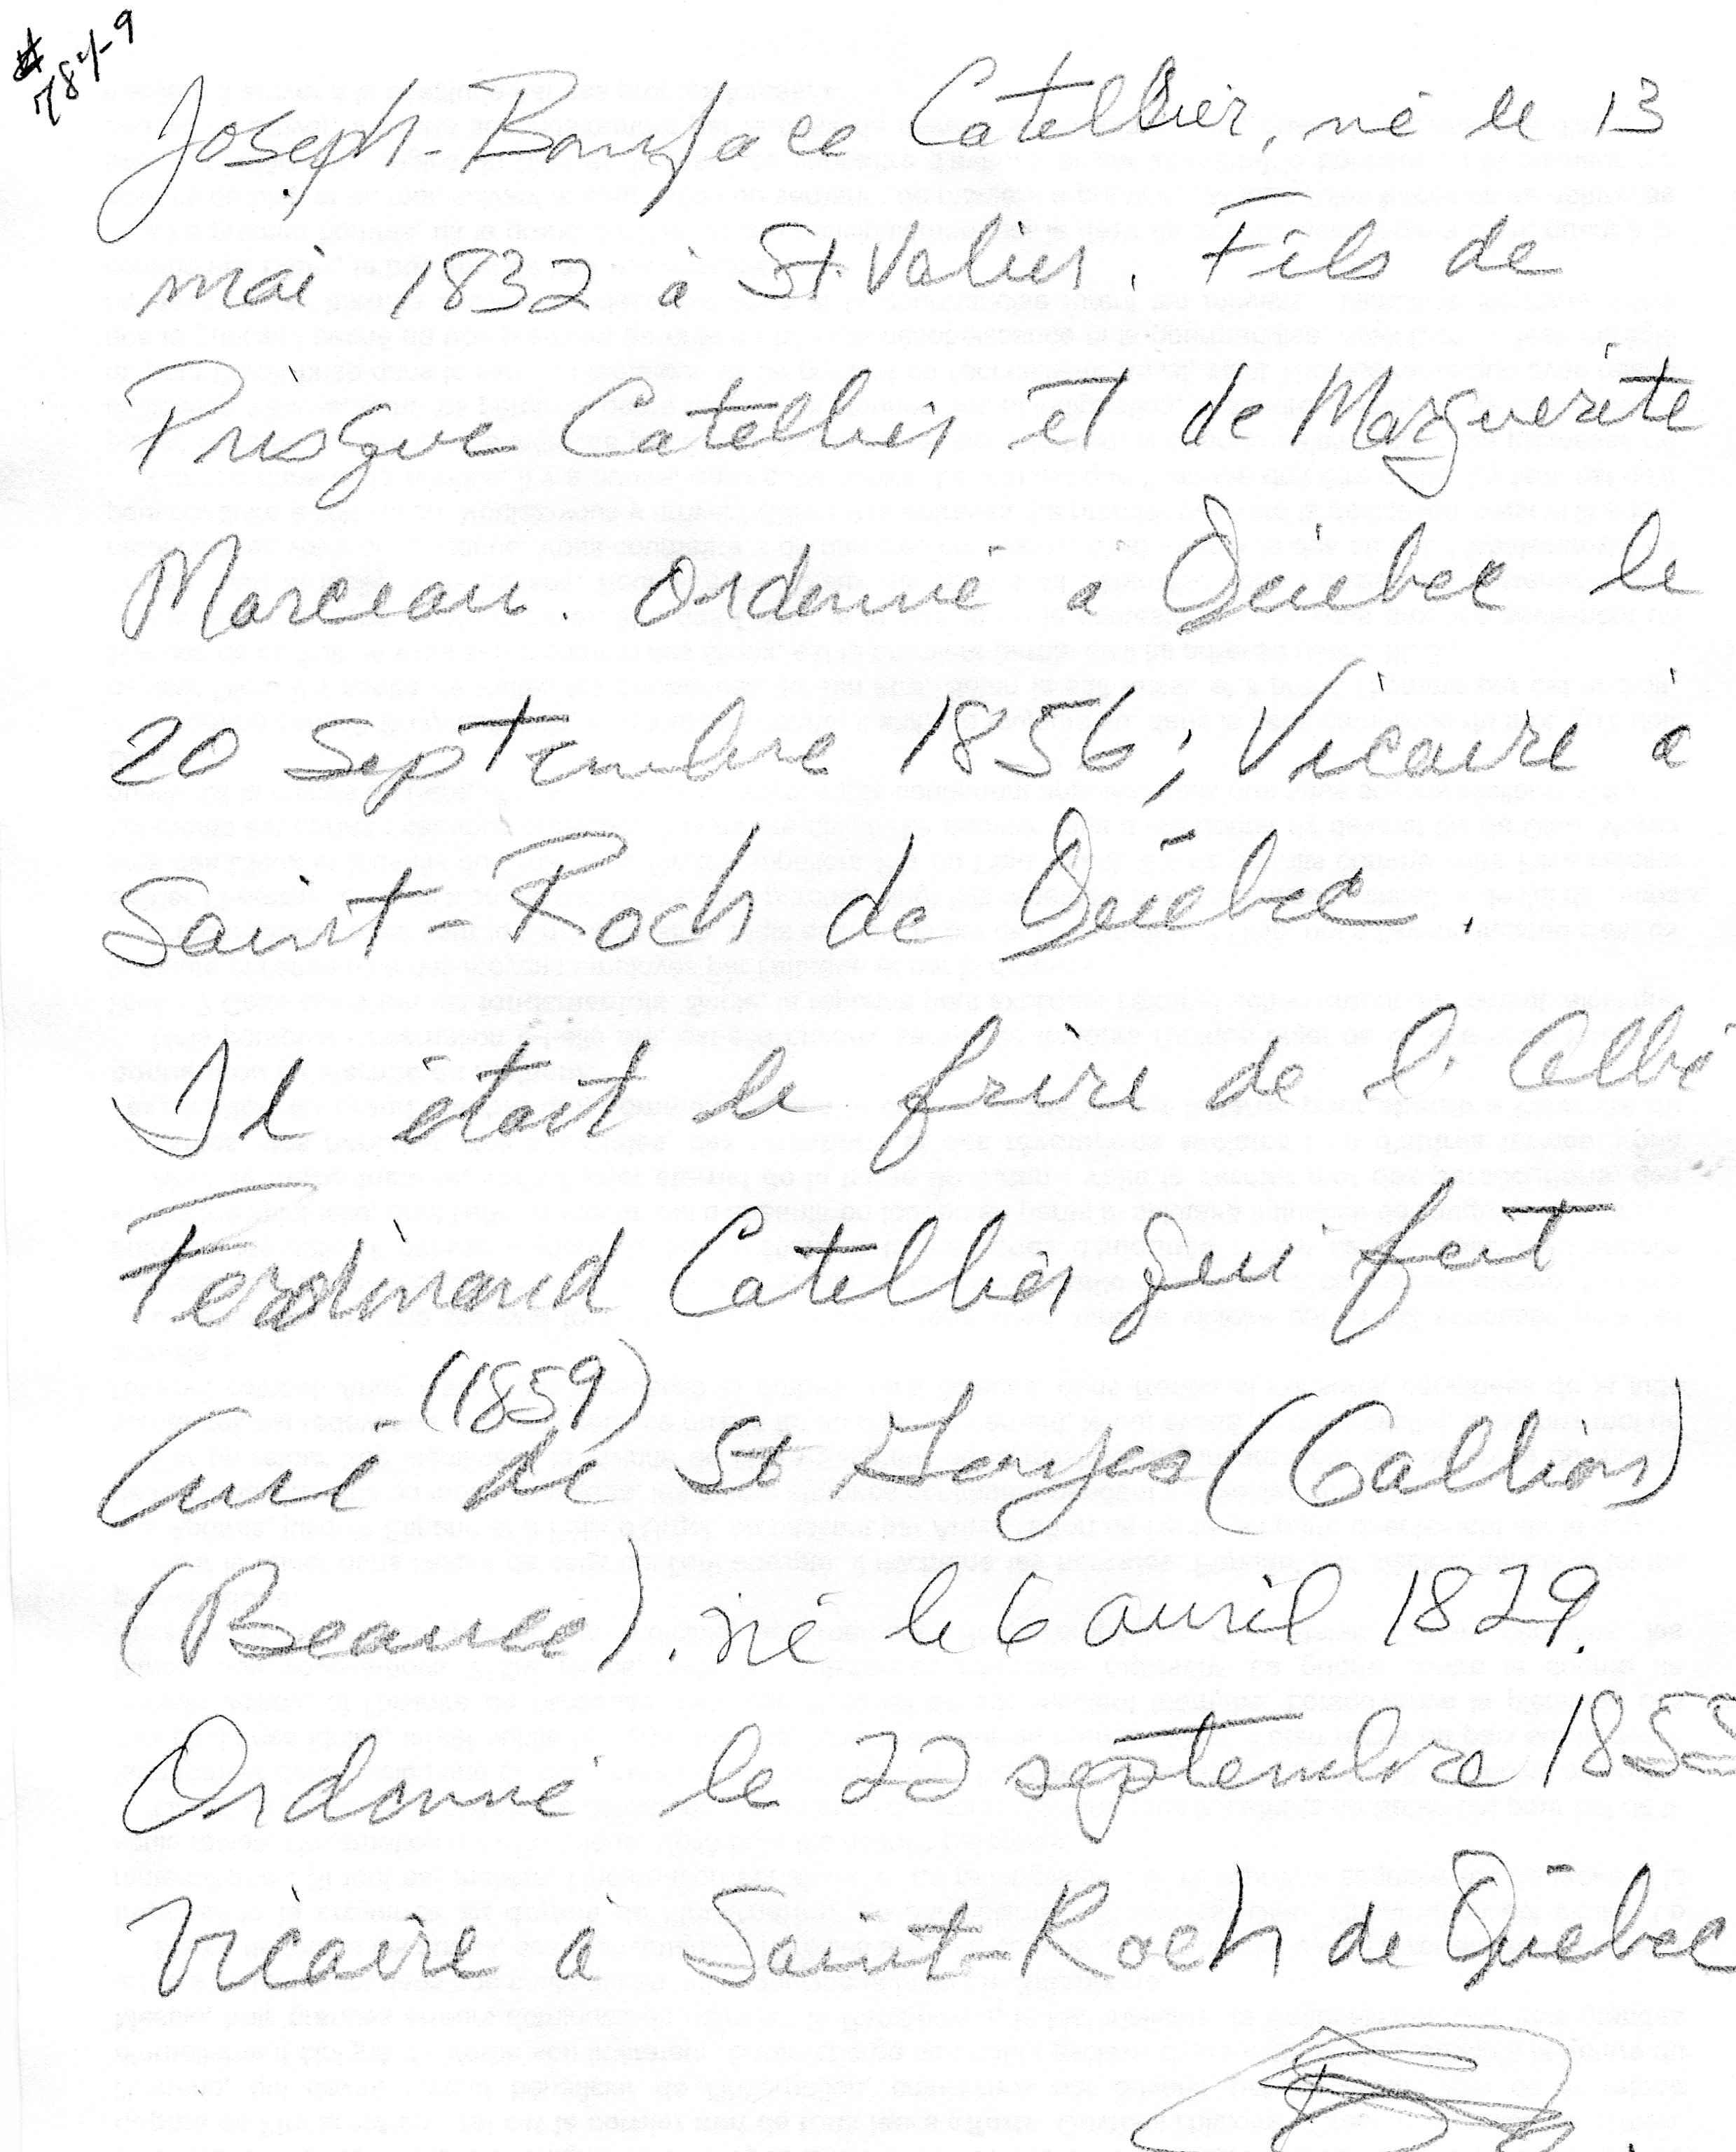 # 784-9
Joseph-Boniface Catellier, né le 13
mai 1832 à St Valier. Fils de
Prisque Catellier et de Marguerite
Marceau. Ordonné a Québec le
20 Septembre 1856; Vicaire à
Saint-Roch de Québec.
Il était le frère de l'Abbé
Ferdinand Catellier qui fut
(1859)
Curé de St Georges (Gallion)
(Beauce). né le 6 avril 1829.
Ordonné le 22 septembre 1855
Vicaire à Saint-Roch de Québec